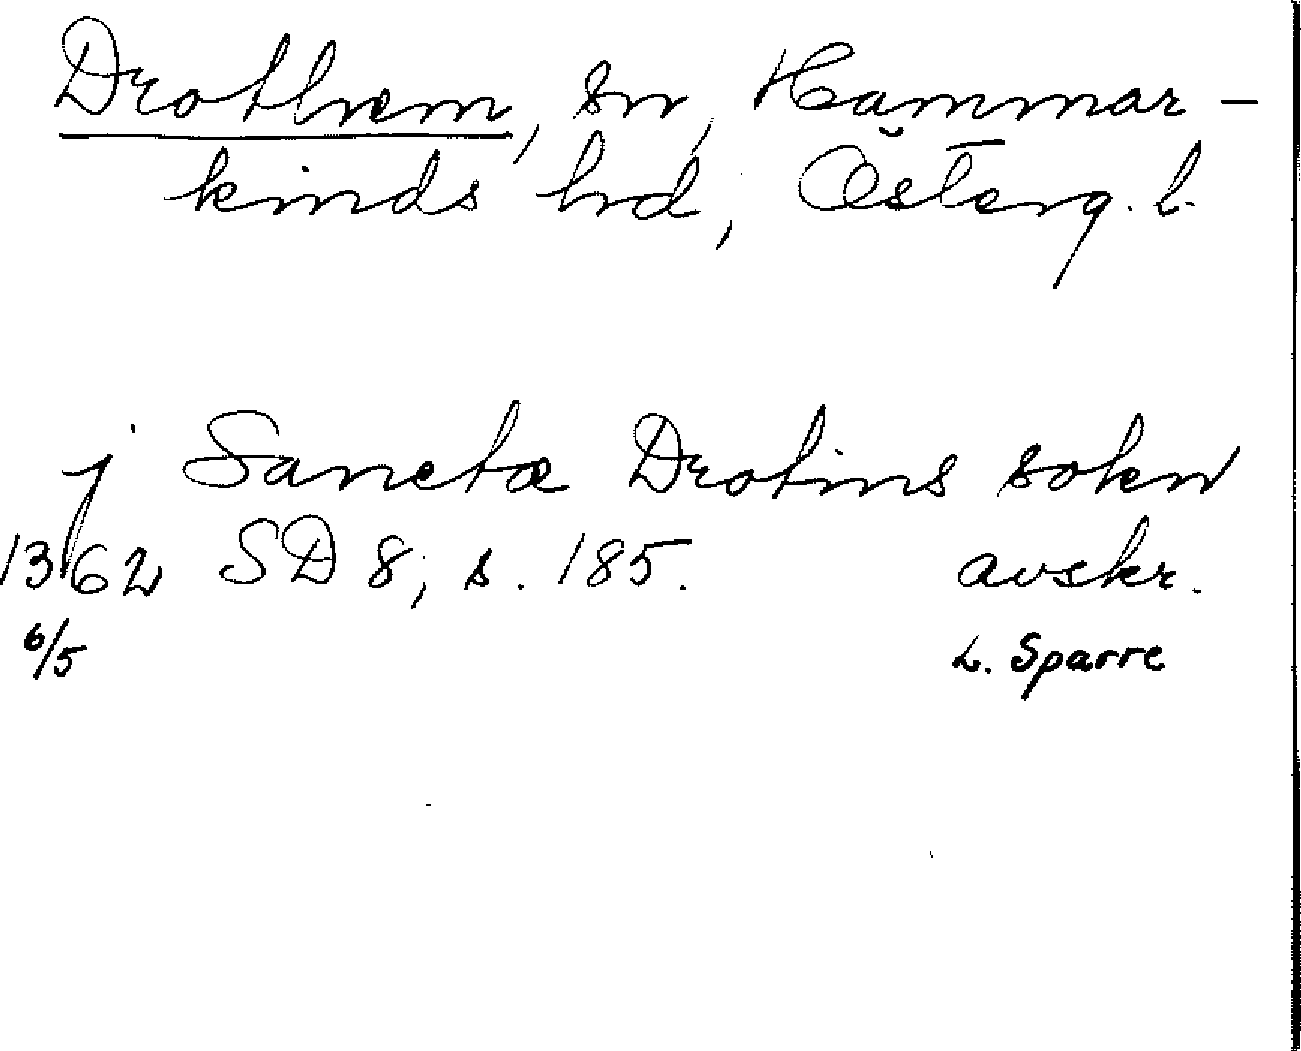 Drothem, sn, Hammar-
kinds hd, Österg. l.
j Sancta Drotins sokn
1362 SD 8, s. 185. avskr.
6/5 L. Sparre